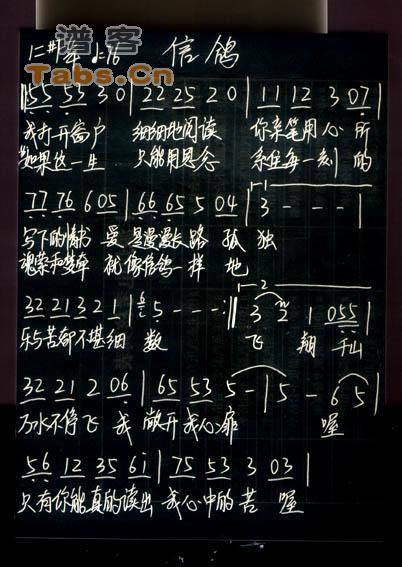 谱客
Tabs.Cn
1=#F 4/4 ♩=76 信鸽
||: 55 53 3 0 | 22 25 2 0 | 11 12 3 07 |
我打开窗户 细细地阅读 你亲笔用心 所
如果这一生 只能用思念 系住每一刻 的
77 76 6 05 | 66 65 5 04 | 3 - - - |
写下的情书 爱 是漫漫长路 孤 独
魂萦和梦牵 就 像信鸽一样 地
32 21 3 2 1 | 5 - - - :|| 3 2 1 055 |
乐与苦都不堪细 数 飞 翔 千山
32 21 2 06 | 65 53 5 - | 5 - 6 5 |
万水不停飞 我 敞开我心扉 喔
56 12 35 6i | 75 53 3 03 |
只有你能真的读出 我心中的苦 喔